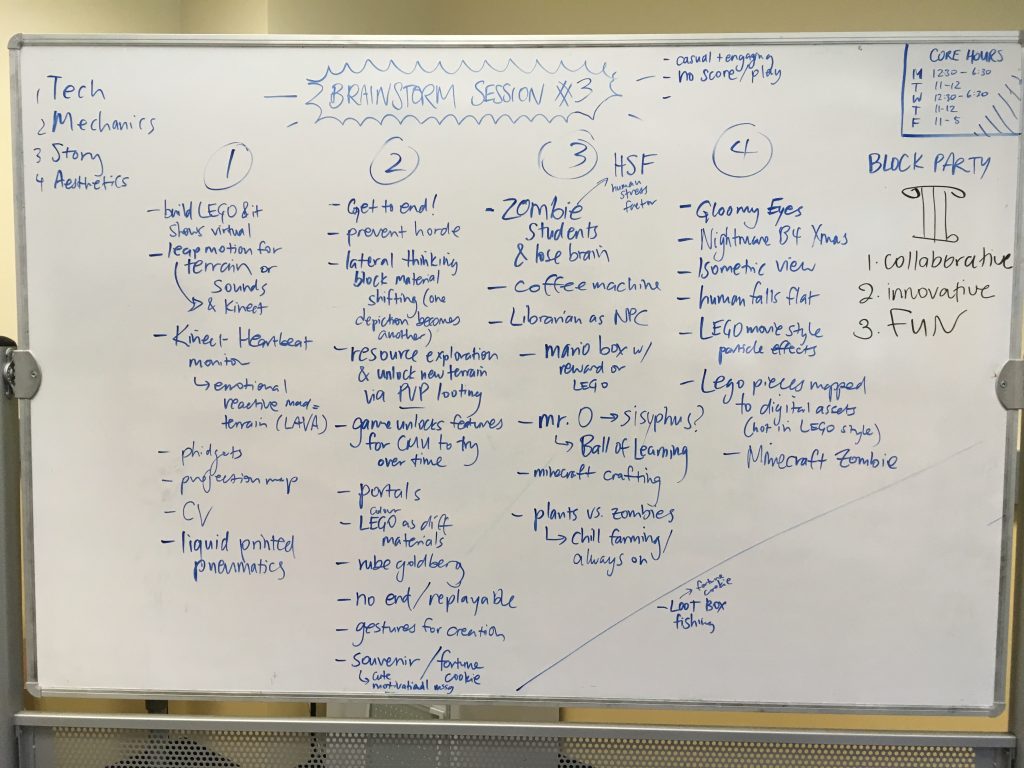 1 Tech
2 Mechanics
3 Story
4 Aesthetics
BRAINSTORM SESSION #3
- casual + engaging
- no score/play
-
CORE HOURS
M 1230 - 6:30
T 11-12
W 12:30 - 6:30
T 11-12
F 11-5
BLOCK PARTY
1. collaborative
2. innovative
3. FUN
1
- build LEGO & it
shows virtual
- leap motion for
terrain or
sounds
& Kinect
- Kinect - Heartbeat
monitor
↳ emotional
reactive mad =
terrain (LAVA)
- phidgets
- projection map
- CV
- liquid printed
pneumatics
2
- Get to end!
- prevent horde
- lateral thinking
block material
shifting (one
depiction becomes
another)
- resource exploration
& unlock new terrain
via PVP looting
- game unlocks features
for CMU to try
over time
- portals
colour
- LEGO as diff
materials
- rube goldberg
- no end/replayable
- gestures for creation
- souvenir/fortune
cookie
↳ cute
motivational msg
3
HSF
human
stress
factor
- ZOMBIE
students
& lose brain
- coffee machine
- Librarian as NPC
- mario box w/
reward or
LEGO
- mr. O → sisyphus?
↳ Ball of Learning
- minecraft crafting
- plants vs. zombies
↳ chill farming/
always on
4
- Gloomy Eyes
- Nightmare B4 Xmas
- Isometric view
- human falls flat
- LEGO movie style
particle effects
- Lego pieces mapped
to digital assets
(not in LEGO style)
- Minecraft Zombie
→ fortune
cookie
- LOOT BOX
fishing